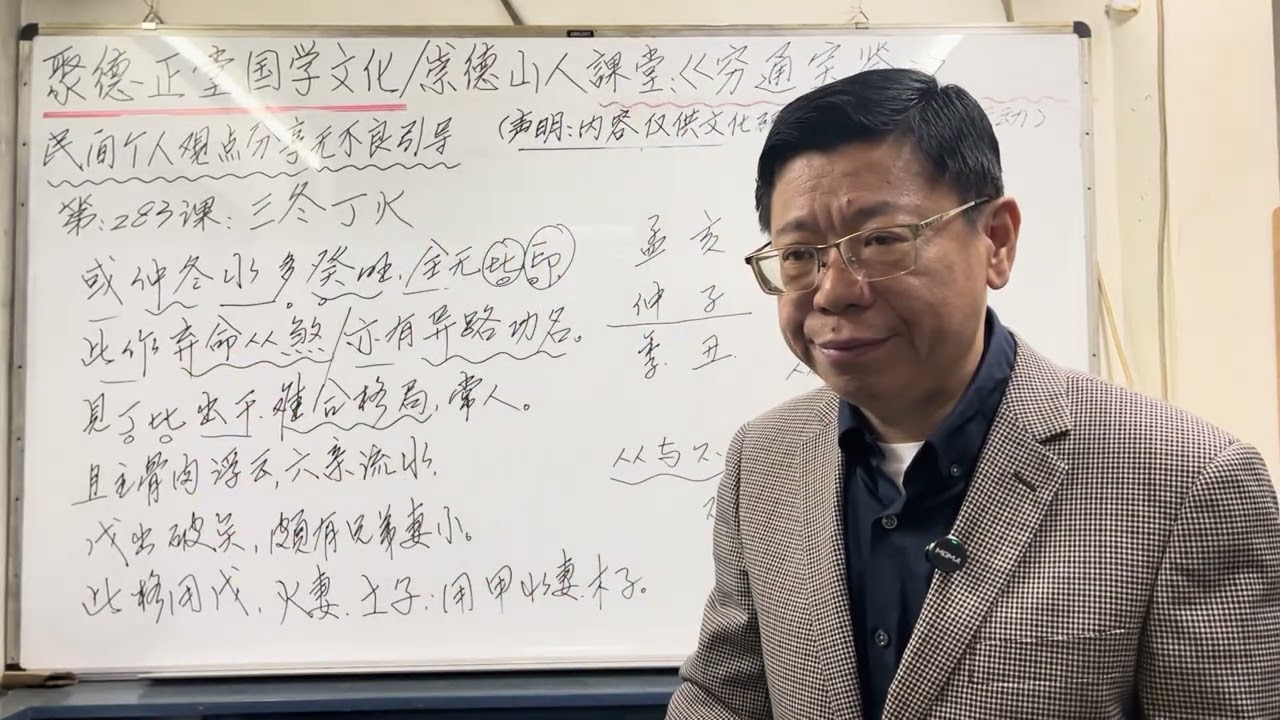 聚德正堂国学文化/崇德山人課堂:《穷通宝鉴》
民间个人观点分享无不良引导
(声明:内容仅供文化研 动)
第:283课:三冬丁火
或仲冬水多癸旺,全无比印
此作弃命从煞/亦有异路功名。
见丁比出干,难合格局,常人。
且主骨肉浮云,六亲流水,
戊出破癸,颇有兄弟妻小。
此格用戊,火妻.土子;用甲水妻.木子。
孟 亥
仲 子
季 丑
从与
MOMA